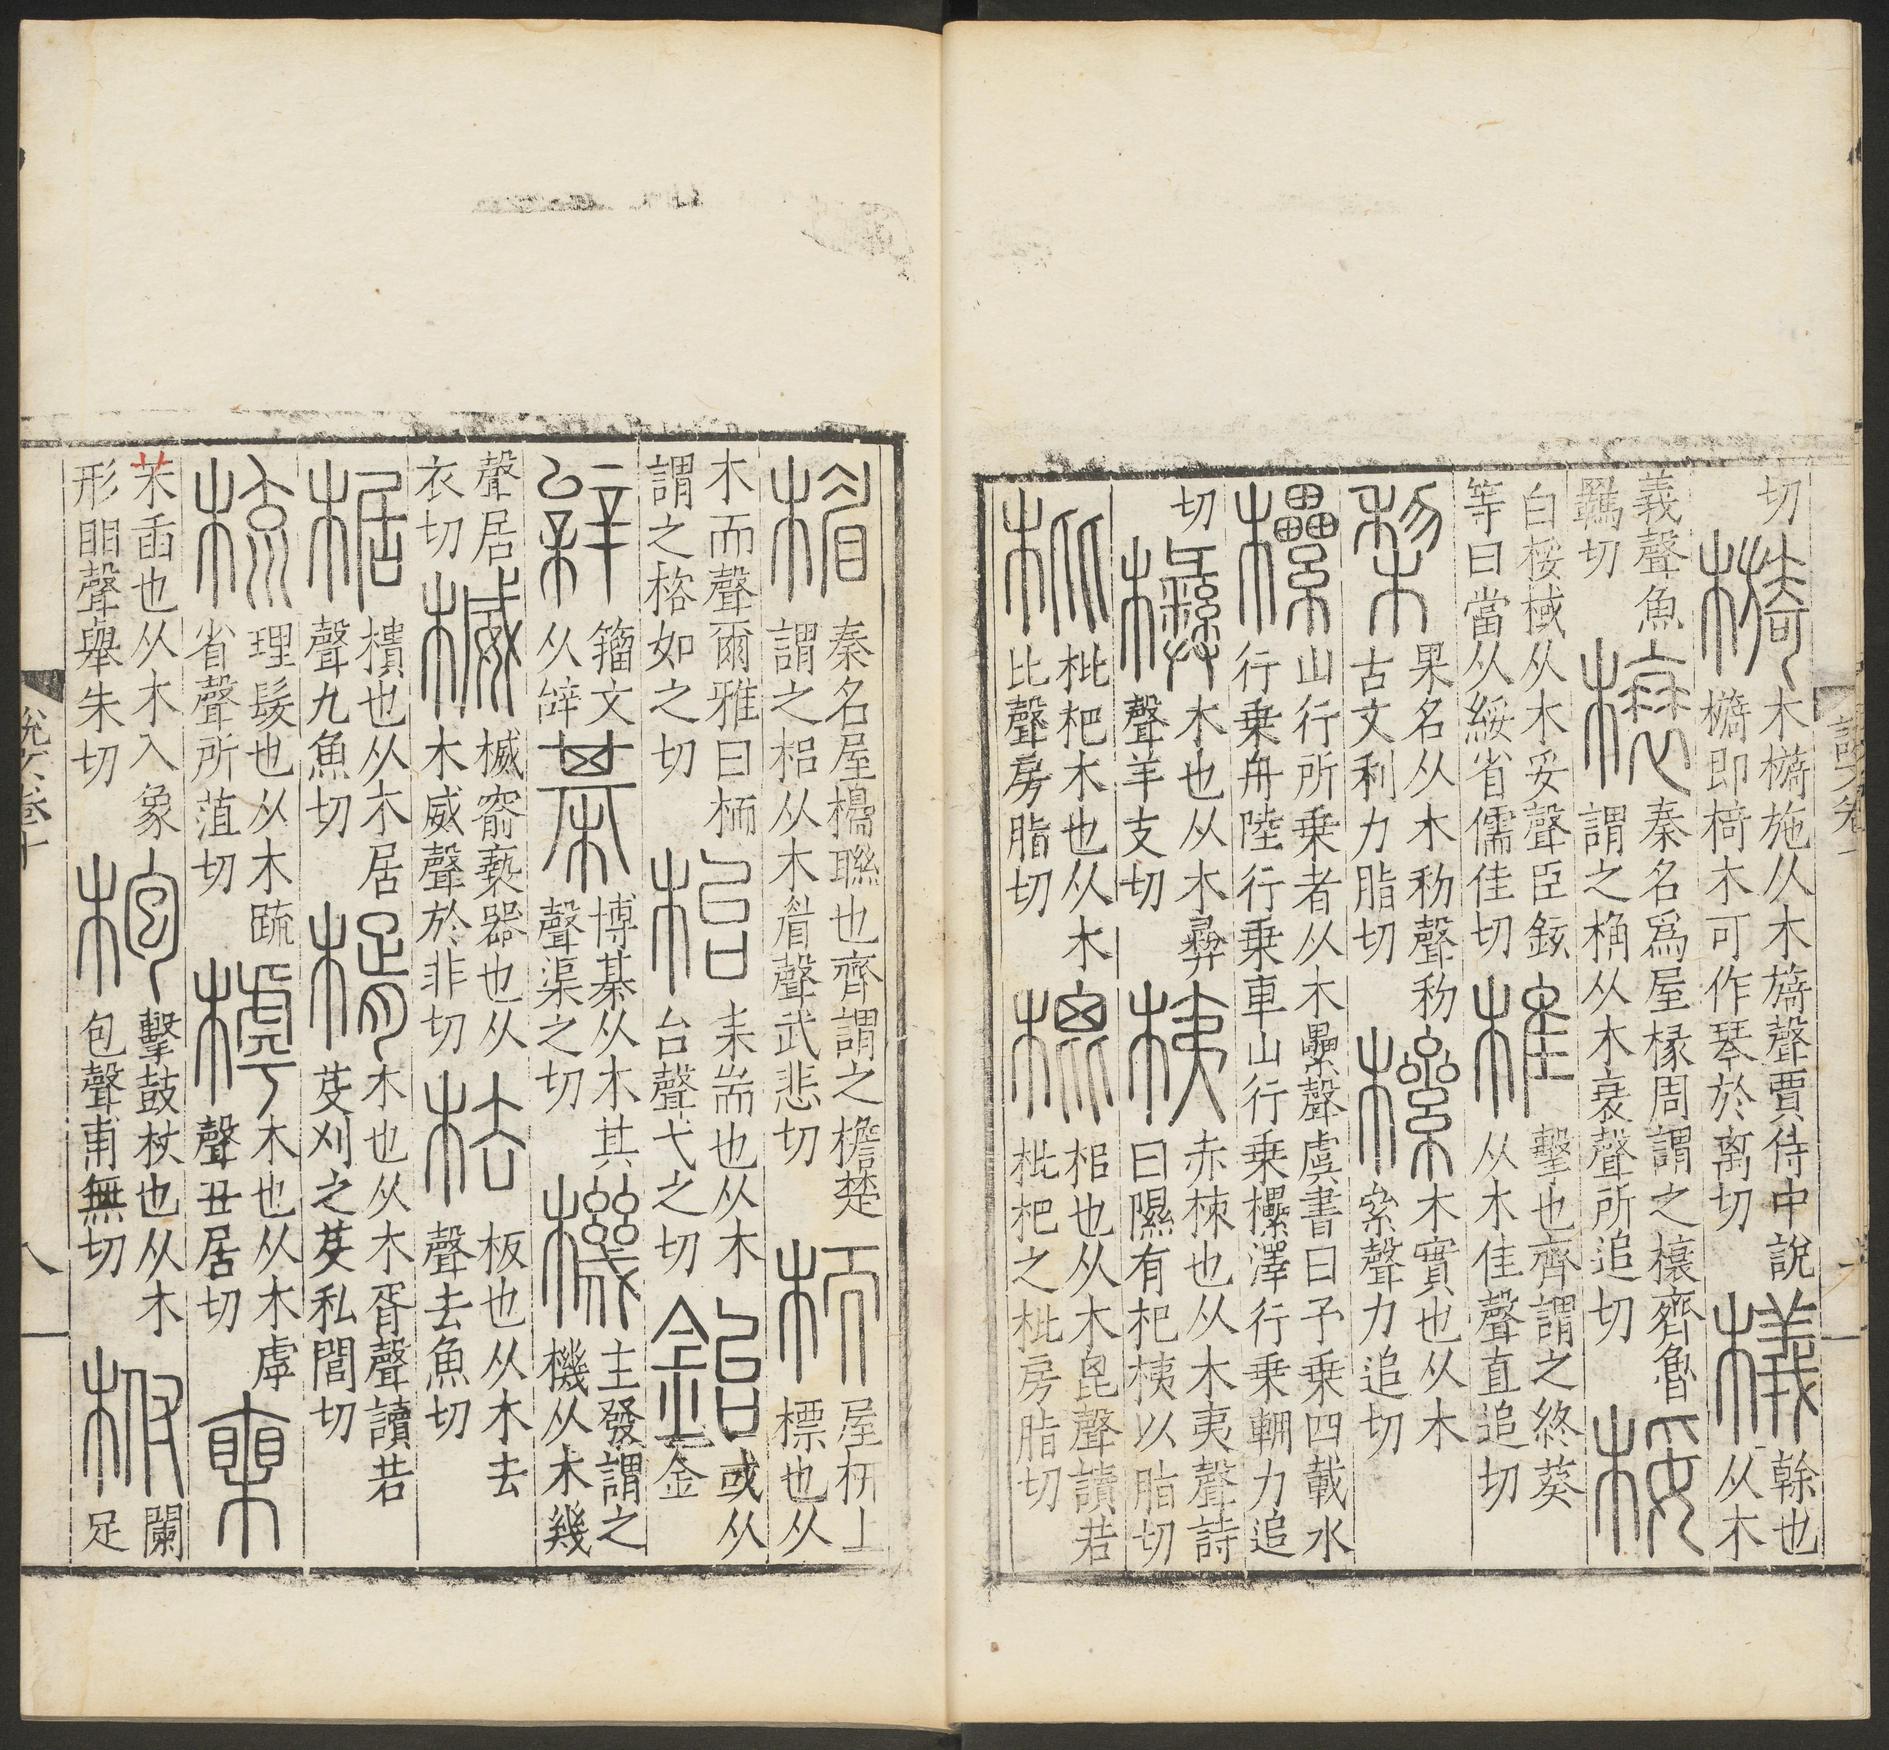 切
檹
木檹施从木旖聲賈侍中說
檹即椅木可作琴於离切
檥
榦也
从木
義聲魚
羈切
榱
秦名爲屋椽周謂之榱齊魯
謂之桷从木衰聲所追切
桵
白桵棫从木妥聲臣鉉
等曰當从綏省儒佳切
椎
擊也齊謂之終葵
从木隹聲直追切
棃
果名从木𥝢聲𥝢
古文利力脂切
木實也从木
絫聲力追切
欙
山行所乗者从木纍聲虞書曰予乗四載水
行乗舟陸行乗車山行乗欙澤行乗輴力追
切
木也从木彛
聲羊支切
桋
赤楝也从木夷聲詩
曰隰有杞桋以脂切
枇
枇杷木也从木
比聲房脂切
㮰
梠也从木𣬉聲讀若
枇杷之枇房脂切
楣
秦名屋櫋聯也齊謂之檐楚
謂之梠从木眉聲武悲切
栭
屋枅上
標也从
木而聲爾雅曰栭
謂之㮤如之切
枱
耒耑也从木
台聲弋之切
鈶
或从
金
辝
籀文
从辝
棊
博棊从木其
聲渠之切
機
主發謂之
機从木幾
聲居
衣切
楲
楲窬褻器也从
木威聲於非切
㭕
板也从木去
聲去魚切
椐
樻也从木居
聲九魚切
楈
木也从木胥聲讀若
芟刈之芟私閭切
梳
理髮也从木疏
省聲所菹切
樗
木也从木虖
聲丑居切
苿臿也从木入象
形䀠聲舉朱切
枹
擊鼓杖也从木
包聲甫無切
柎
闌
足
說文卷十
八